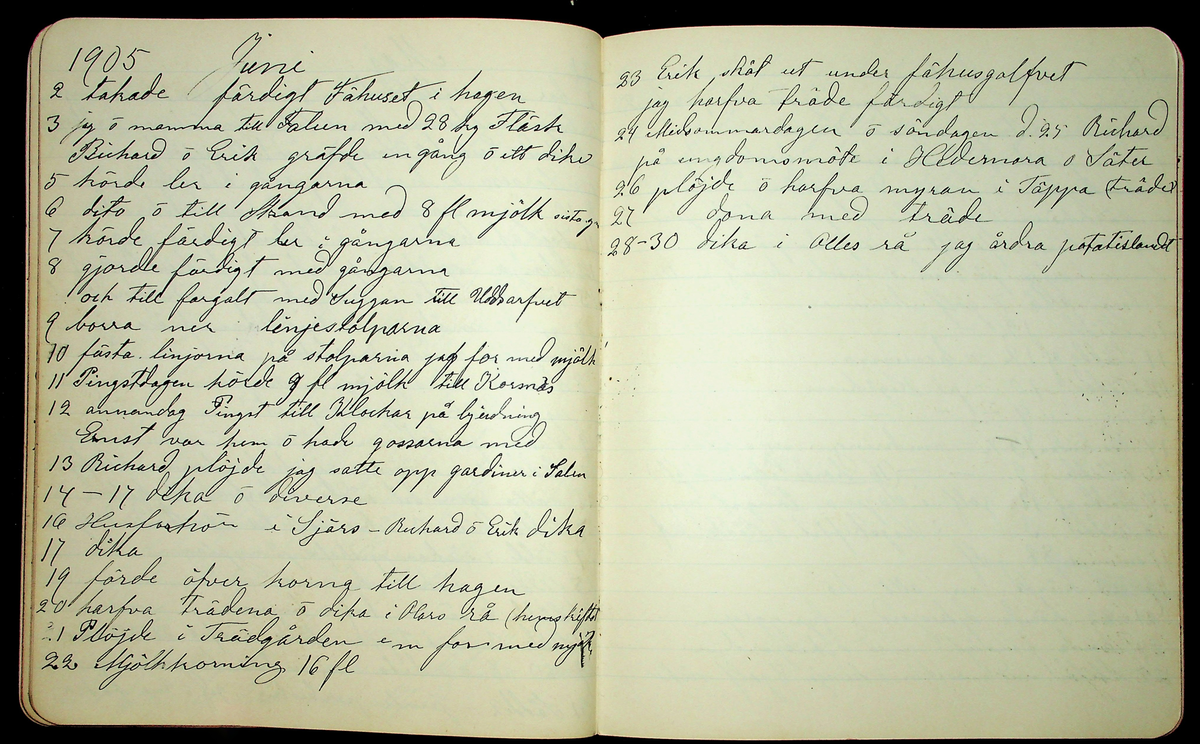 1905 Juni
2 takade färdigt Fähuset i hagen
3 jag ö mamma till Falun med 28 kg Fläsk
Richard ö Erik gräfde en gång ö ett dike
5 körde ler i gångarna
6 dito ö till Strand med 8 fl mjölk sista g
7 körde färdigt ler i gångarna
8 gjorde färdigt med gångarna
och till fargalt med Suggan till Uddsarfvet
9 borra ner linjestolparna
10 fästa linjorna på stolparna jag for med mjölk
11 Pingstdagen körde 9 fl mjölk till Korsnäs
12 annandag Pingst till Klockar på bjudning
Ernst var hem ö hade gossarna med
13 Richard plöjde jag satte opp gardiner i Salen
14 – 17 dika ö diverse
16 i Sjärs – Richard ö Erik dika
17 dika
19 förde öfver korng till hagen
20 harfva trädena ö dika i Olars rå (hemskiftet
21 Plöjde i Trädgården em for med mjölk
22 Mjölkkörning 16 fl
23 Erik sköt ut under fähusgolfvet
jag harfva träde färdigt
24 Midsommardagen ö söndagen d. 25 Richard
på ungdomsmöte i Hedemora o Säter
26 plöjde ö harfva myran i Täppa (träde)
27 dona med träde
28–30 dika i Olles rå jag årdra potatislandt